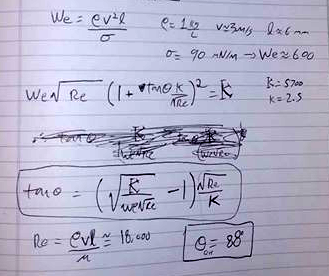 We = ρv²l / σ   ρ = 1 kg/L   v≈3m/s   l≈6mm
σ = 90 mN/m → We≈600
We√Re (1 + tanθ k/√Re)² = K   K = 5700
k = 2.5
tanθ = (√(K / We√Re) − 1) √Re / K
Re = ρvl / μ ≅ 18,000   θ = 88°